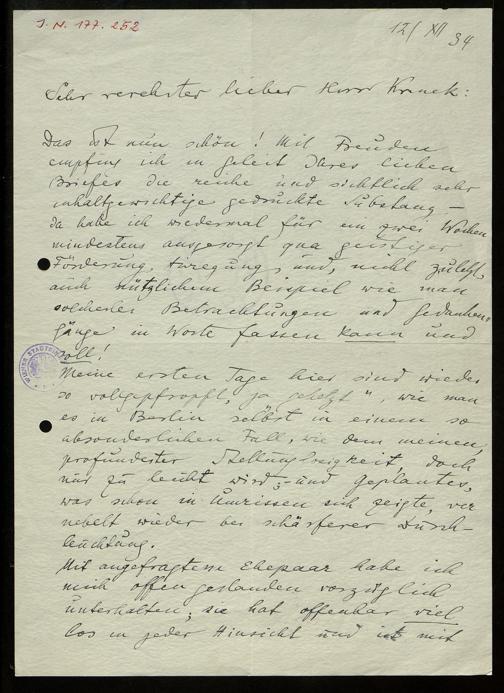 I. N. 177.252
12/ XII 34
Sehr verehrter lieber Herr Krenek:
Das ist nun schön! Mit Freuden
empfing ich im Geleit Ihres lieben
Briefes die reiche und sichtlich sehr
inhaltgewichtige gedruckte Substanz –
da habe ich wiedermal für ein zwei Wochen
mindestens ausgesorgt qua geistiger
Förderung, Anregung, und, nicht zuletzt,
auch nützlichem Beispiel wie man
solcherlei Betrachtungen und Gedanken-
gänge in Worte fassen kann und
soll!
Meine ersten Tage hier sind wieder
so vollgepfropft, "ja gehetzt", wie man
es in Berlin selbst in einem so
absonderlichen Fall, wie dem meinen,
profundester Stellungslosigkeit, doch
nur zu leicht wird; – und geplantes,
was schon in Umrissen sich zeigte, ver
nebelt wieder bei schärferer Durch-
leuchtung.
Mit angefragtem Ehepaar habe ich
mich offen gestanden vorzüglich
unterhalten; sie hat offenbar viel
los in jeder Hinsicht und ist mit